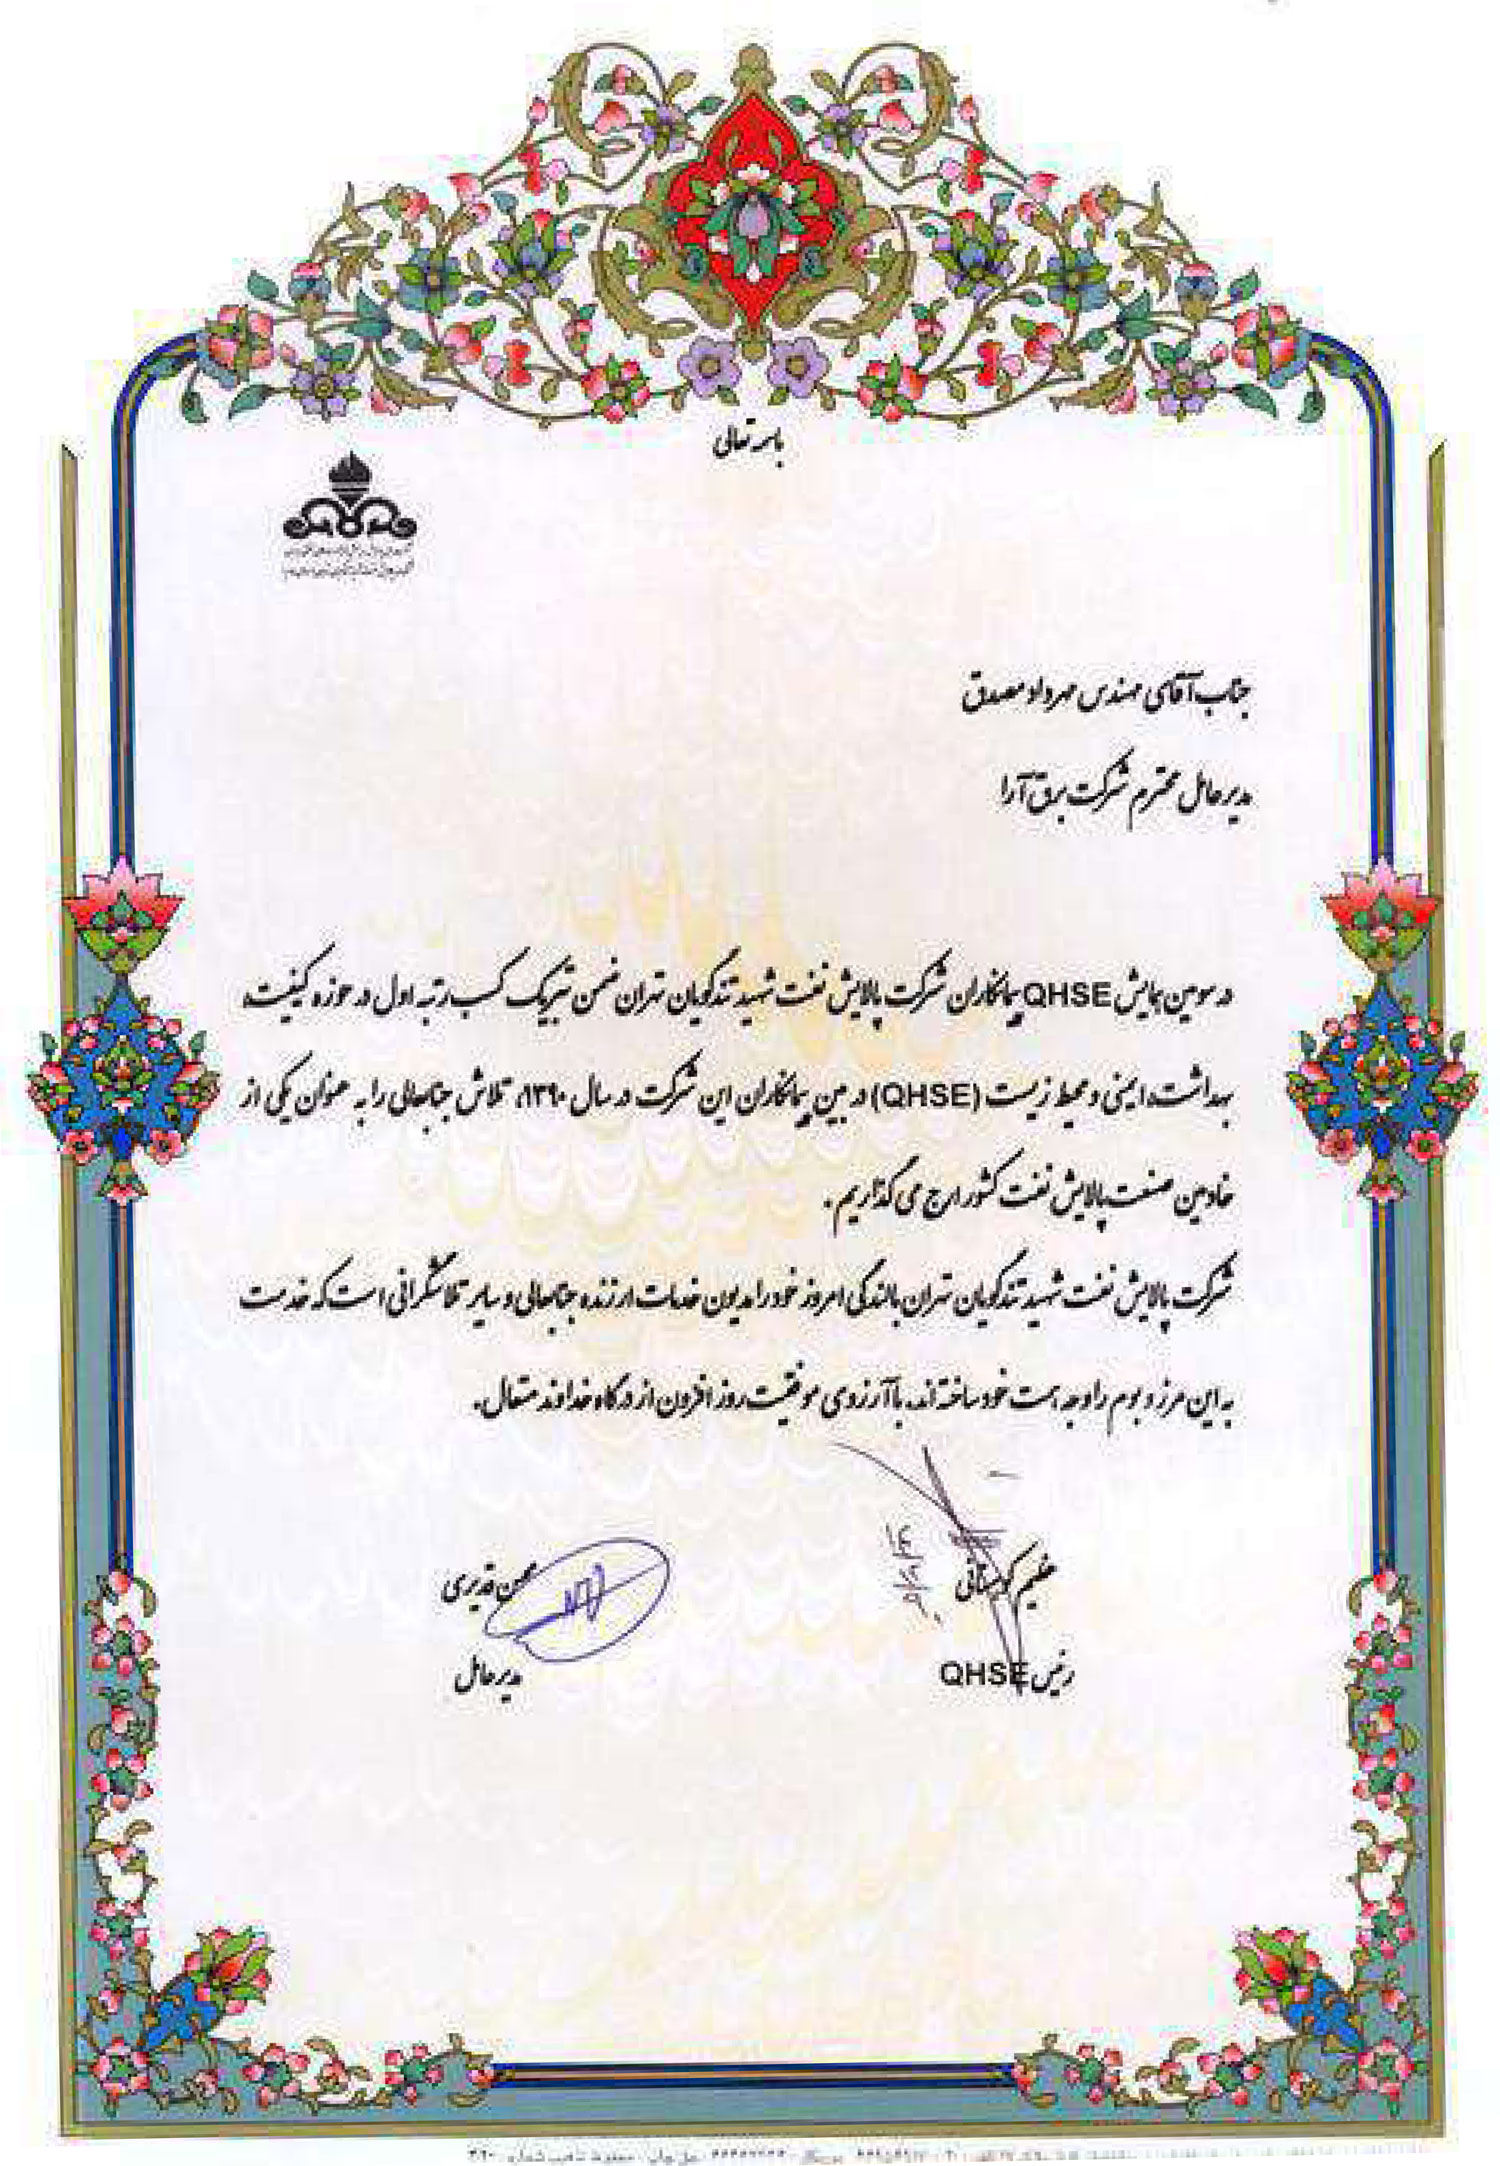 باسمه تعالی
جناب آقای مهندس مهرداد مصدق
مدیرعامل محترم شرکت برق آرا
در سومین همایش QHSE پیمانکاران شرکت پالایش نفت شهید تندگویان تهران ضمن تبریک کسب رتبه اول در حوزه کیفیت،
بهداشت، ایمنی و محیط زیست (QHSE) در بین پیمانکاران این شرکت در سال ۱۳۹۰، تلاش جنابعالی را به عنوان یکی از
خادمین صنعت پالایش نفت کشور ارج می گذاریم.
شرکت پالایش نفت شهید تندگویان تهران بالندگی امروز خود را مدیون خدمات ارزنده جنابعالی و سایر تلاشگرانی است که خدمت
به این مرز و بوم را وجهه همت خود ساخته اند. با آرزوی موفقیت روز افزون از درگاه خداوند متعال.
کوهستانی
رئیس QHSE
محسن قدیری
مدیرعامل